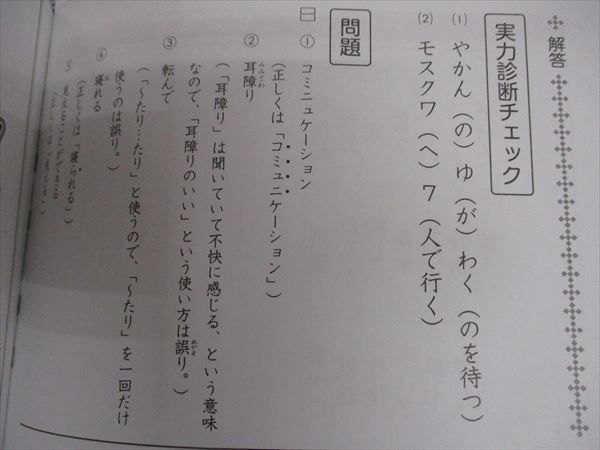 解答
実力診断チェック
(1) やかん(の)ゆ(が)わく(のを待つ)
(2) モスクワ(へ)7(人で行く)
問題
一 ① コミニュケーション
(正しくは「コミュニケーション」)
② 耳障り
(「耳障り」は聞いていて不快に感じる、という意味
なので、「耳障りのいい」という使い方は誤り。)
③ 転んで
(「〜たり…たり」と使うので、「〜たり」を一回だけ
使うのは誤り。)
④ 寝れる
(正しくは「寝られる」)
⑤ 見えることができる